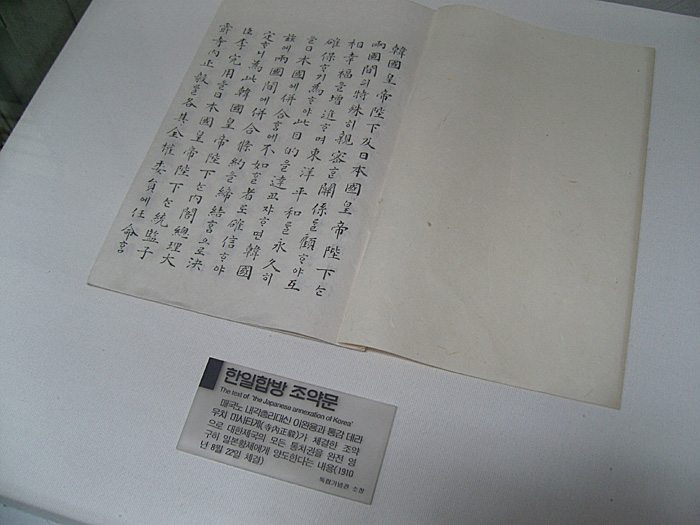 韓國皇帝陛下及日本國皇帝陛下ᄂᆞᆫ
兩國間의特殊히親密ᄒᆞᆫ關係를顧ᄒᆞ야互
相幸福을增進ᄒᆞ며東洋平和를永久히
確保ᄒᆞ기爲ᄒᆞ야此目的을達코쟈ᄒᆞ면韓國
을日本國에併合ᄒᆞᆷ에不如ᄒᆞᆫ者로確信ᄒᆞ야
玆에兩國間에併合條約을締結ᄒᆞᆷ으로決
定ᄒᆞ니爲此韓國皇帝陛下ᄂᆞᆫ內閣總理大
臣李完用을日本國皇帝陛下ᄂᆞᆫ統監子
爵寺內正毅를各其全權委員에任命ᄒᆞᆷ
한일합방 조약문
The test of 'the Japanese annexation of Korea'
매국노 내각총리대신 이완용과 통감 데라
우치 마사타케(寺內正毅)가 체결한 조약
으로 대한제국의 모든 통치권을 완전 영
구히 일본황제에게 양도한다는 내용(1910
년 8월 22일 체결)
독립기념관 소장